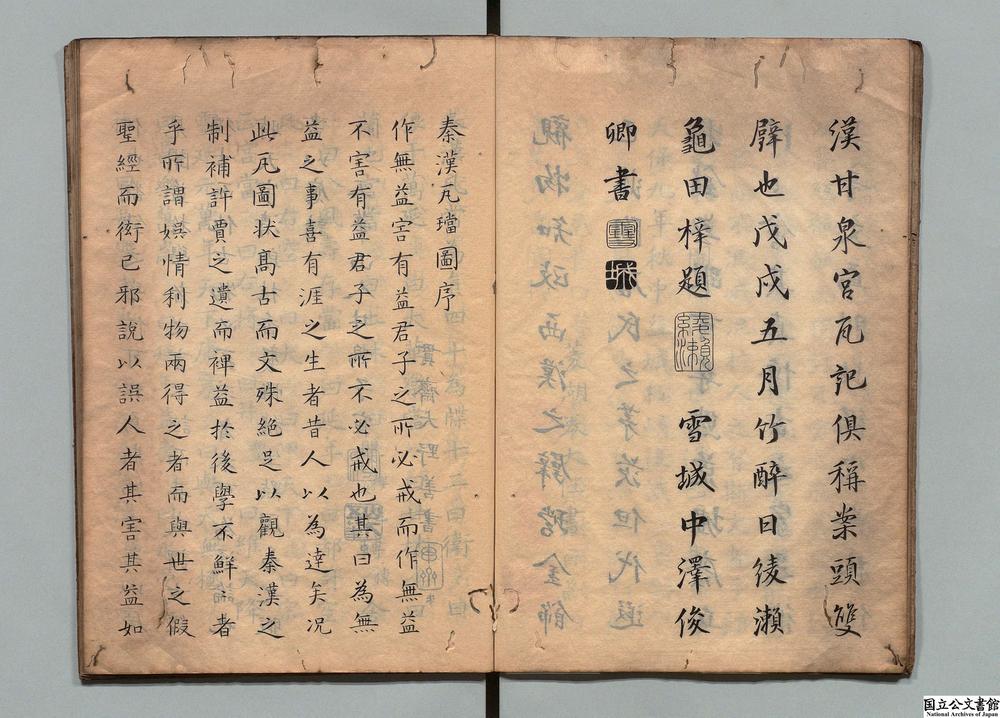 漢甘泉宮瓦記俱稱案頭雙
躄也戊戌五月竹醉日綾瀬
龜田梓題 綾瀬 雪城中澤俊
卿書 雪城
秦漢瓦璫圖序
作無益害有益君子之所必戒而作無益
不害有益君子之所不必戒也其曰為無
益之事喜有涯之生者昔人以為達矣况
此瓦圖状髙古而文殊絶足以觀秦漢之
制補許賈之遺而裨益於後學不鮮者
乎所謂娯情利物兩得之者而與世之假
聖經而衒已邪說以誤人者其害其益如
国立公文書館
National Archives of Japan